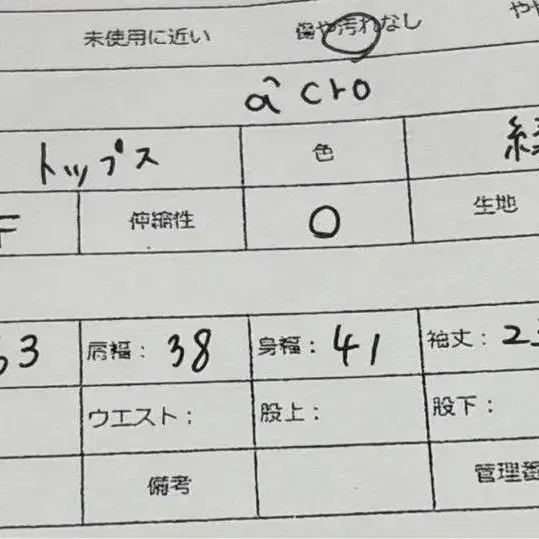 未使用に近い 傷や汚れなし やや
a cro
トップス 色
F 伸縮性 O 生地
63 肩幅: 38 身幅: 41 袖丈: 2
ウエスト: 股上: 股下:
備考 管理番